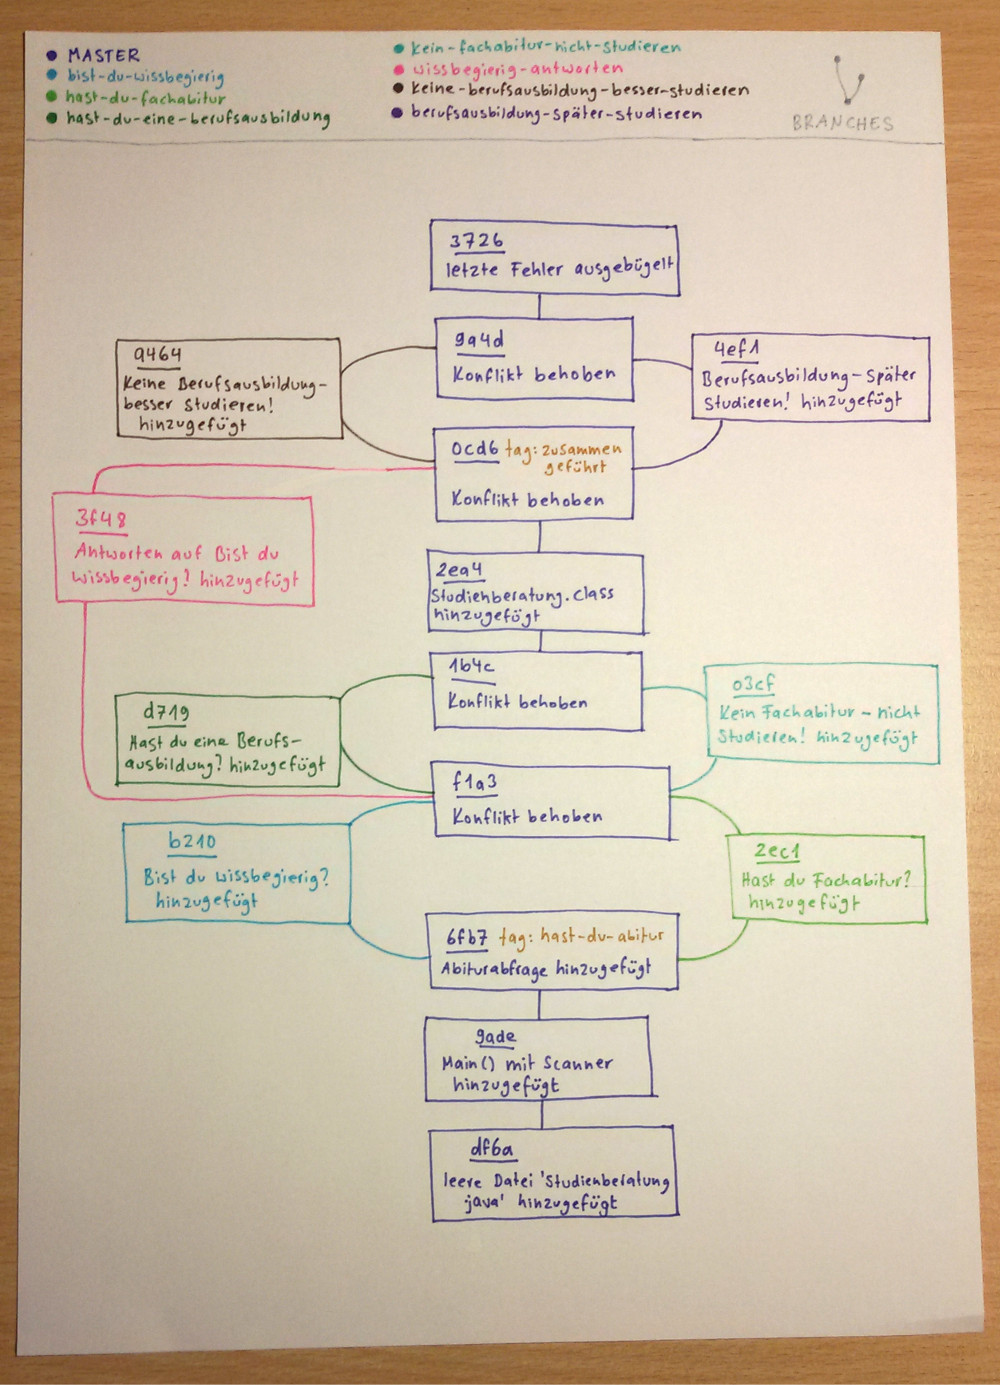 MASTER
bist-du-wissbegierig
hast-du-fachabitur
hast-du-eine-berufsausbildung
kein-fachabitur-nicht-studieren
wissbegierig-antworten
keine-berufsausbildung-besser-studieren
berufsausbildung-später-studieren
BRANCHES
3726
letzte Fehler ausgebügelt
9a4d
Konflikt behoben
a464
Keine Berufsausbildung-
besser Studieren!
hinzugefügt
4ef1
Berufsausbildung-Später
Studieren! hinzugefügt
0cd6 tag: zusammen
geführt
Konflikt behoben
3f48
Antworten auf Bist du
wissbegierig? hinzugefügt
2ea4
Studienberatung.class
hinzugefügt
1b4c
Konflikt behoben
d719
Hast du eine Berufs-
ausbildung? hinzugefügt
03cf
Kein Fachabitur - nicht
Studieren! hinzugefügt
f1a3
Konflikt behoben
b210
Bist du wissbegierig?
hinzugefügt
2ec1
Hast du Fachabitur?
hinzugefügt
6fb7 tag: hast-du-abitur
Abiturabfrage hinzugefügt
9ade
Main() mit Scanner
hinzugefügt
df6a
leere Datei 'Studienberatung
java' hinzugefügt